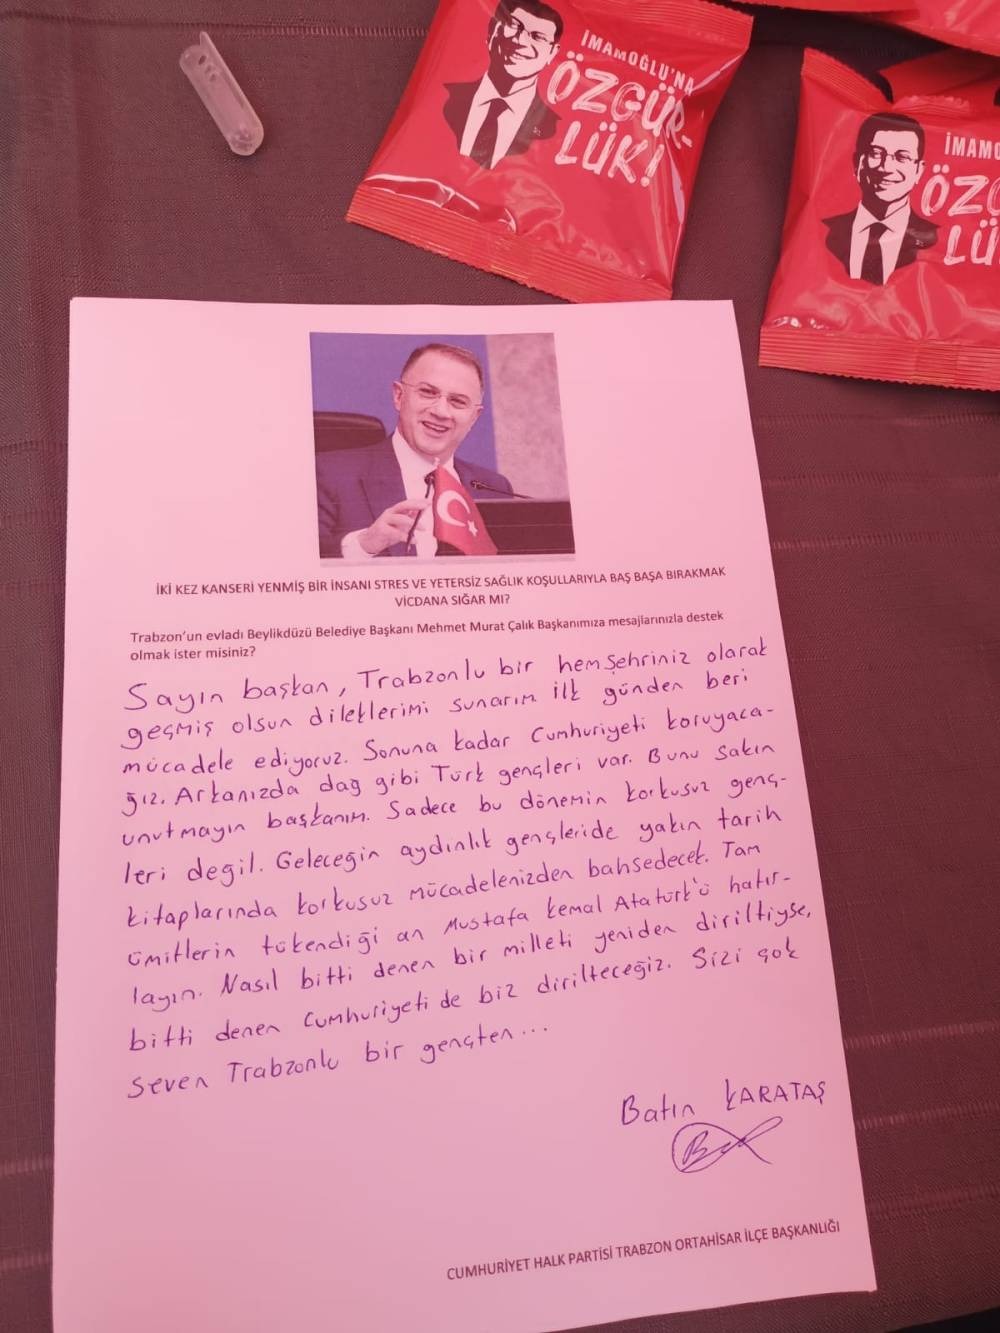 İMAMOĞLU'NA
ÖZGÜR-
LÜK!
İMAMO
ÖZG
LÜ
İKİ KEZ KANSERİ YENMİŞ BİR İNSANI STRES VE YETERSİZ SAĞLIK KOŞULLARIYLA BAŞ BAŞA BIRAKMAK
VİCDANA SIĞAR MI?
Trabzon'un evladı Beylikdüzü Belediye Başkanı Mehmet Murat Çalık Başkanımıza mesajlarınızla destek
olmak ister misiniz?
Sayın başkan, Trabzonlu bir hemşehriniz olarak
geçmiş olsun dileklerimi sunarım İlk günden beri
mücadele ediyoruz. Sonuna kadar Cumhuriyeti koruyaca-
ğız. Arkanızda dağ gibi Türk gençleri var. Bunu sakın
unutmayın başkanım. Sadece bu dönemin korkusuz genç-
leri değil. Geleceğin aydınlık gençleride yakın tarih
kitaplarında korkusuz mücadelenizden bahsedecek. Tam
ümitlerin tükendiği an Mustafa Kemal Atatürk'ü hatır-
layın. Nasıl bitti denen bir milleti yeniden diriltiyse,
bitti denen Cumhuriyeti de biz dirilteceğiz. Sizi çok
seven Trabzonlu bir gençten...
Batın KARATAŞ
CUMHURİYET HALK PARTİSİ TRABZON ORTAHİSAR İLÇE BAŞKANLIĞI